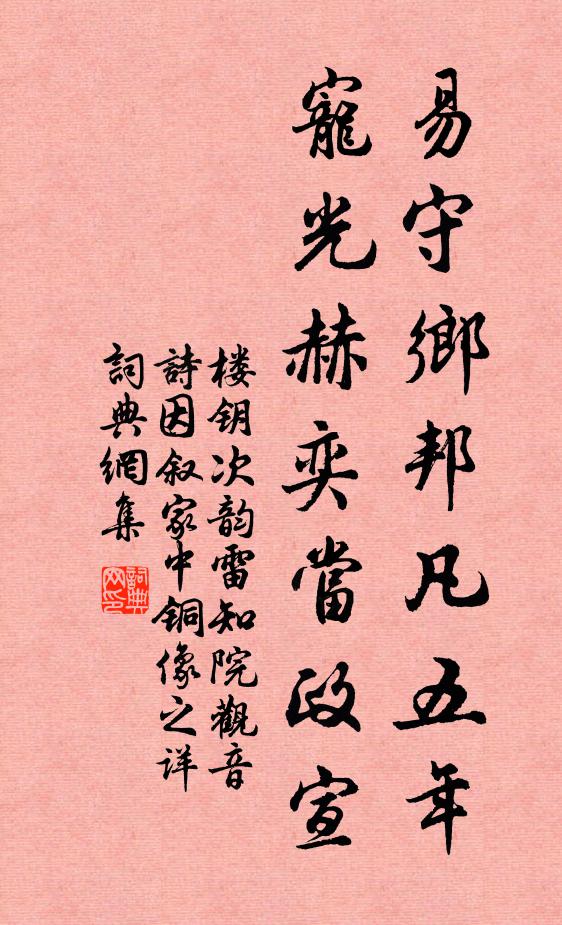 易守鄉邦凡五年
寵光赫奕當政宣
楼钥次韵雷知院觀音
詩因叙家中铜像之详
詞典網集
詞典
网印